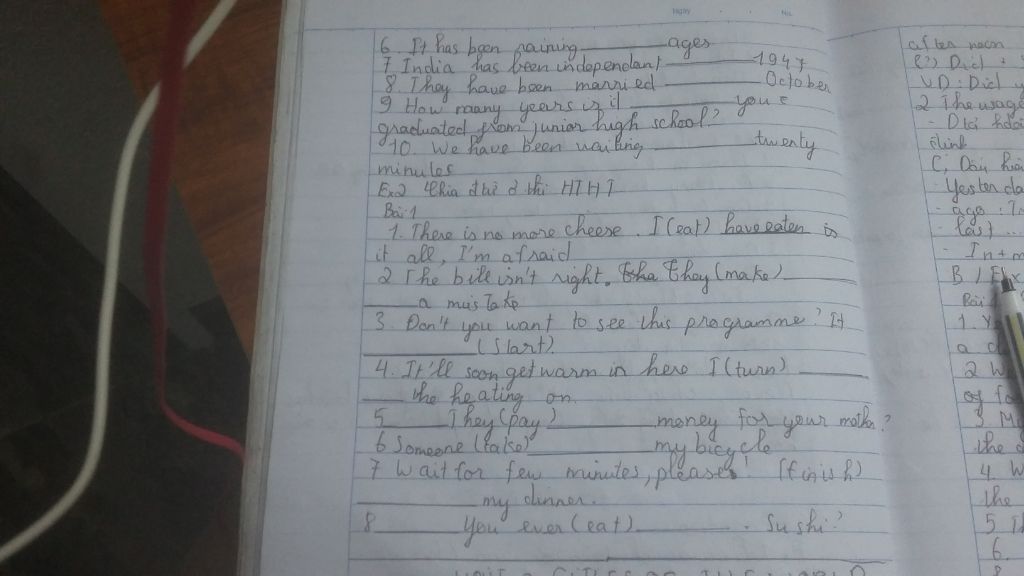 Ngày No.
6 It has been raining ______ ages
7 India has been independant ______ 1947
8 They have been married ______ October
9 How many years is it ______ you
graduated from junior high school?
10. We have been waiting ______ twenty
minutes
Ex2 Chia đt ở thì HTHT
Bài 1
1. There is no more cheese. I (eat) have eaten
it all, I'm afraid
2 The bill isn't right. They (make) ______
______ a mistake
3. Don't you want to see this programme? It
______ (start).
4. It'll soon get warm in here I (turn) ______
______ the heating on.
5 ______ They (pay) ______ money for your mother?
6 Someone (take) ______ my bicycle
7 Wait for few minutes, please! I (finish)
______ my dinner.
8 ______ You ever (eat) ______. Sushi?
after noon
Did
VD: Did
2 The usage
think
C, Dấu
Yesterday
ago
last ...
In + m
B / Ex
Bài
1.
a
2 W
of
3 M
the
4. W
the
5
6.